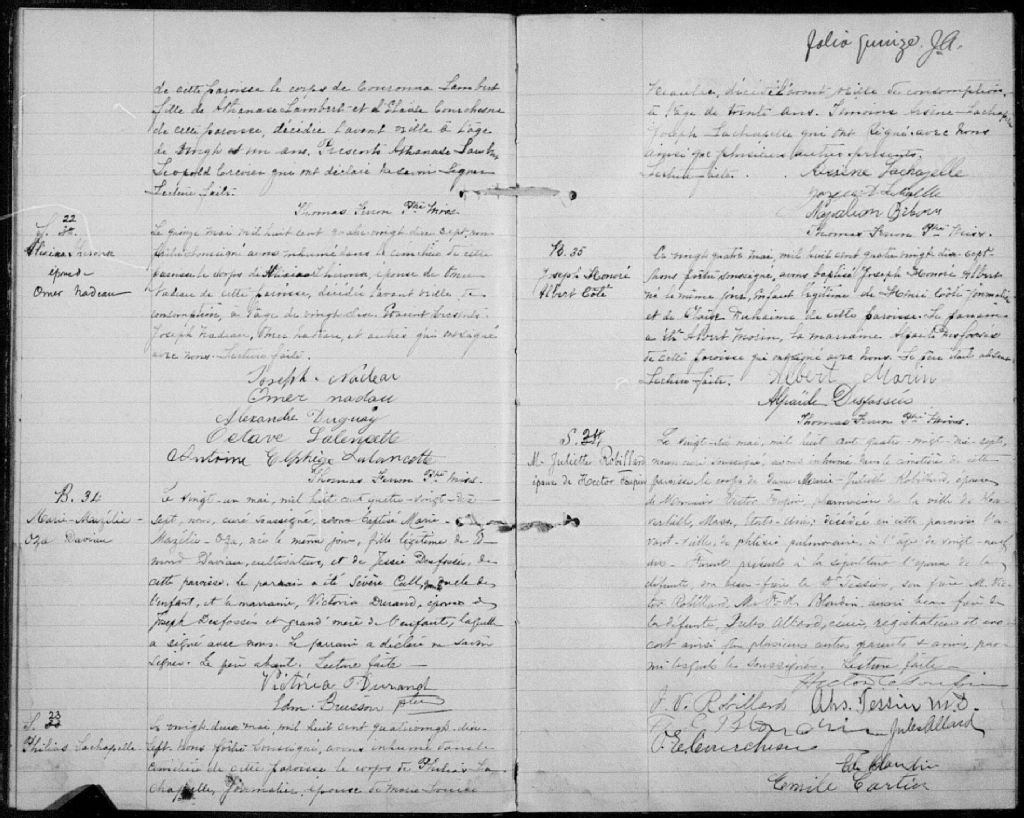 de cette paroisse le corps de Couronna Lambert
fille de Athanase Lambert et d'Elavie Courchesne
de cette paroisse, décédée l'avant veille à l'âge
de vingt et un ans. Présents Athanase Lamb
Léopold Crevier qui ont déclaré ne savoir signer
Lecture faite.
Thomas Ptre Miss.
S. 22
épouse
Omer Nadeau
Le quinze mai mil huit cent quatre vingt dix sept, nous
prêtre soussigné avons inhumé dans le cimetière de cette
paroisse le corps de épouse de Omer
Nadeau de cette paroisse, décédée l'avant veille de
consomption, à l'âge de vingt deux. Etaient présents
Joseph Nadeau, Omer Nadeau, et autres qui ont signé
avec nous. Lecture faite.
Joseph Nadeau
Omer nadau
Alexandre Duguay
Octave Lalencette
Antoine Elphège Lalancette
Thomas Ptre Miss.
B. 34
Marie-Mazélie-
Oza Daviau
Le vingt un mai, mil huit cent quatre-vingt-dix
sept, nous, curé soussigné, avons baptisé Marie-
Mazélie-Oza, née le même jour, fille légitime de Ed
mond Daviau, cultivateur, et de Jessie Desfossés, de
cette paroisse. Le parrain a été Sévère oncle de
l'enfant, et la marraine, Victoria Durand, épouse de
Joseph Desfossés et grand'mère de l'enfant, laquelle
a signé avec nous. Le parrain a déclaré ne savoir
signer. Le père absent. Lecture faite —
Victoria Durand
Edm. Buisson ptre
S. 23
Philias Lachapelle
Le vingt deux mai, mil huit cent quatre vingt dix-
sept nous prêtre soussigné, avons inhumé dans le
cimetière de cette paroisse le corps de Philias La
chapelle, journalier, époux de Marie Louise
folio quinze. J.A.
décédé l'avant veille de consomption,
à l'âge de trente ans. Témoins Arsène Lachapelle
Joseph Lachapelle qui ont signé avec nous
ainsi que plusieurs autres présents.
Lecture faite.
Arsène Lachapelle
Napoléon
Thomas Ptre Miss.
B. 35
Joseph Honoré
Albert Côté
Le vingt quatre mai, mil huit cent quatre vingt dix-sept
nous prêtre soussigné, avons baptisé Joseph Honoré Albert
né le même jour, enfant légitime de Henri Côté journalier
et de de cette paroisse. Le parrain
a été Albert Morin, la marraine Alfaïde Desfossés
de cette paroisse qui ont signé avec nous. Le père était absent
Lecture faite.
Albert Marin
Alfaïde Desfossés
Thomas Ptre Miss.
S. 24
M. Juliette Robillard
épouse de Hector
Le vingt-six mai, mil huit cent quatre-vingt-dix-sept,
nous curé soussigné, avons inhumé dans le cimetière de cette
paroisse le corps de Dame Marie-Juliette Robillard, épouse
de Monsieur Hector pharmacien de la ville de
Mass, Etats-Unis, décédée en cette paroisse l'a-
vant-veille, de phtisie pulmonaire à l'âge de vingt-neuf
ans. Furent présents à la sépulture l'époux de la
défunte, son beau-frère le Dr Tessier, son frère M. Vic-
tor Robillard Mr Blondin aussi beau frère de
la défunte, Jules Allard, registrateur et avo-
cat ainsi que plusieurs autres parents & amis, par-
mi lesquels les soussignés. Lecture faite —
Hector
J. V. Robillard Ahs. Tessier M.D.
Jules Allard
Emile Cartier